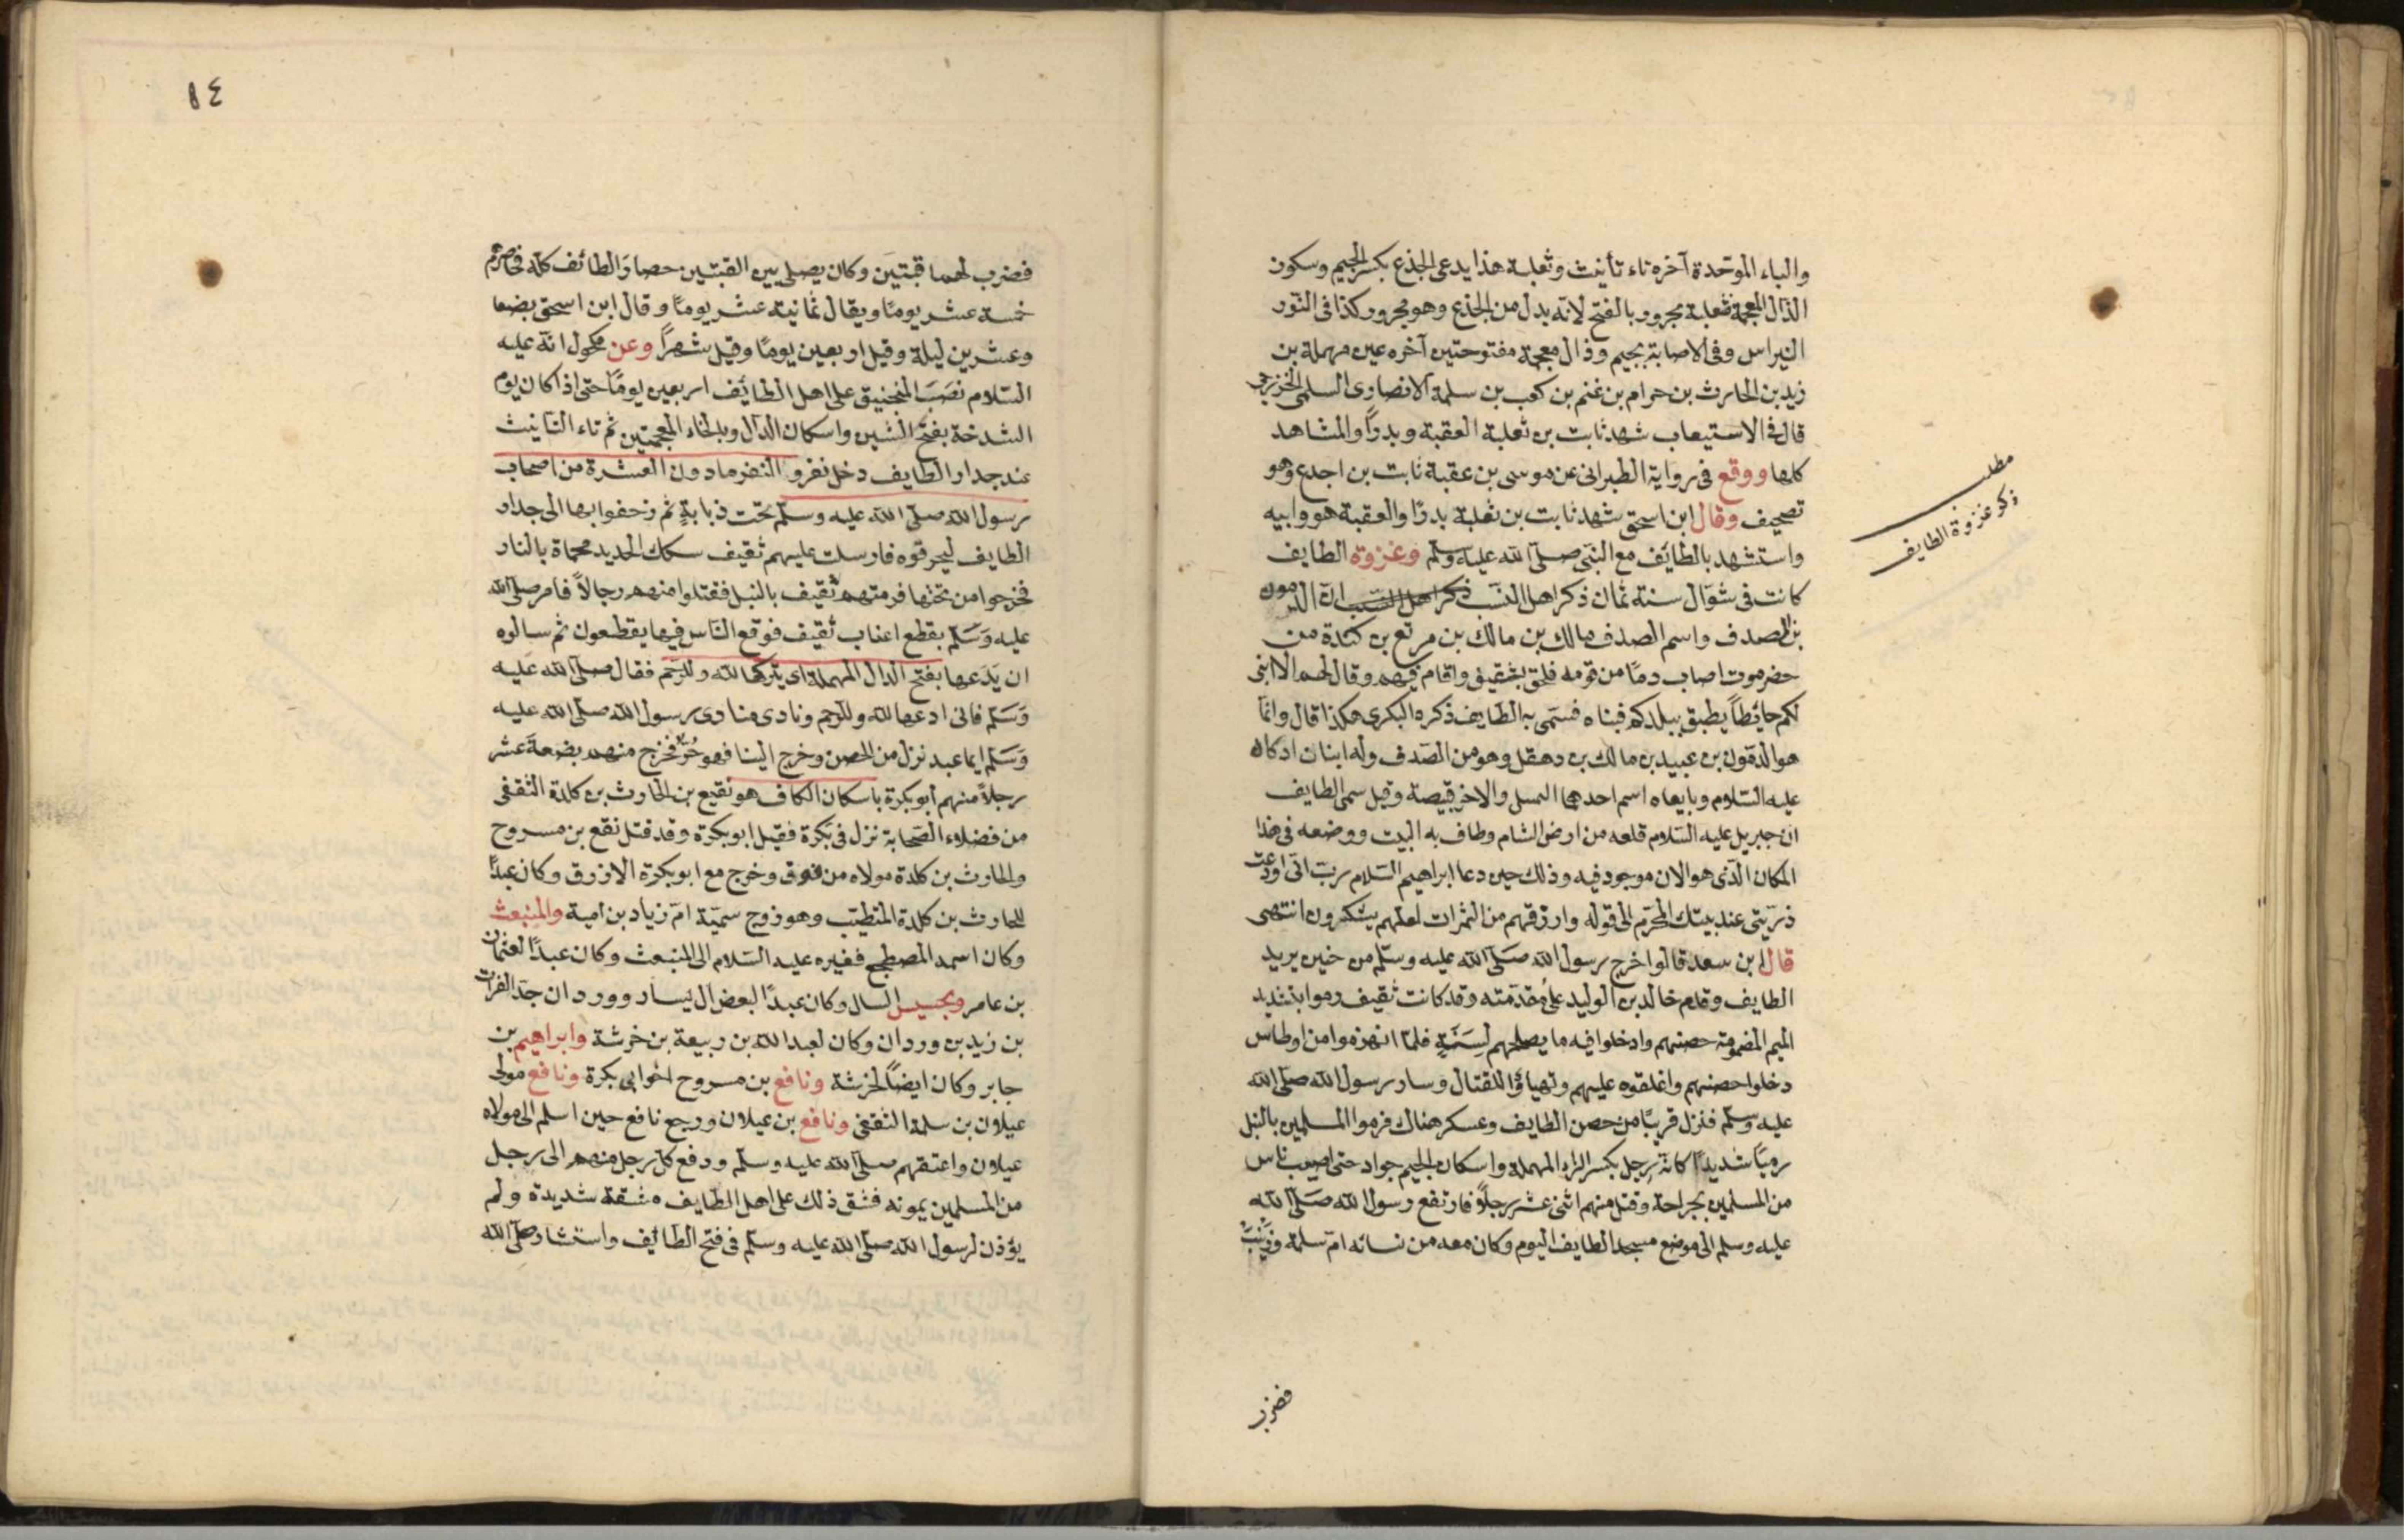 والباء الموحّدة آخره تاء تأنيث وثعلبة هذا يدعى الجذع بكسر الجيم وسكون
الذال المعجمة فثعلبة مجرور بالفتح لانّه بدل من الجذع وهو مجرور كذا فى النّور
النبراس وفى الاصابة بجيم وذال معجمة مفتوحتين آخره عين مهملة بن
زيد بن الحارث بن حرام بن غنم بن كعب بن سلمة الانصارى السلمى الخزرجى
قال فى الاستيعاب شهد ثابت بن ثعلبة العقبة وبدرًا والمشاهد
كلها ووقع فى رواية الطبرانى عن موسى بن عقبة ثابت بن اجدع وهو
تصحيف وقال ابن اسحق شهد ثابت بن ثعلبة بدرًا والعقبة هو وابيه
واستشهد بالطائف مع النبى صلّى الله عليه وسلّم وغزوة الطايف
مطلب
ذكر غزوة الطايف
كانت فى شوّال سنة ثمان ذكر اهل النسب انّ الدمون
بن الصدف واسم الصدف مالك بن مالك بن مرتع بن كندة من
حضرموت اصاب دمًا من قومه فلحق بثقيف واقام فيهم وقال لهم الا ابنى
لكم حائطًا يطيق ببلدكم فبناه فسمّى به الطايف ذكره البكرى هكذا قال وانّما
هو الدمون بن عبيد بن مالك بن دهقل وهو من الصّدف وله ابنان ادركاه
عليه السّلام وبايعاه اسم احدهما الهميل والاخر قبيصة وقيل سمى الطايف
ان جبريل عليه السّلام قلعه من ارض الشام وطاف به البيت ووضعه فى هذا
المكان الّذى هو الان موجود فيه وذلك حين دعا ابراهيم السّلام ربّ انّى اودعت
ذرّيتى عند بيتك المحرّم الى قوله وارزقهم من الثمرات لعلهم يشكرون انتهى
قال ابن سعد قالوا خرج رسول الله صلّى الله عليه وسلّم من حنين يريد
الطايف وقدم خالد بن الوليد على مقدّمته وقد كانت ثقيف رموا بتشديد
الميم المضمومة حصنهم وادخلوا فيه ما يصلحهم لِسَنَةٍ فلمّا انهزموا من اوطاس
دخلوا حصنهم واغلقوه عليهم وتهياؤا للقتال وسار رسول الله صلّى الله
عليه وسلّم فنزل قريبًا من حصن الطايف وعسكر هناك فرموا المسلمين بالنبل
رميًا شديدًا كانّه رِجل بكسر الراء المهملة واسكان الجيم جراد حتى اصيب ناس
من المسلمين بجراحة وقتل منهم اثنى عشر رجلًا فارتفع رسول الله صلّى الله
عليه وسلم الى موضع مسجد الطايف اليوم وكان معه من نسائه امّ سلمة وزَيْنَبَ
فضرب
١٤
فضرب لهما قبّتين وكان يصلى بين القبتين حصار الطائف كلّه فحاصرهم
خمسة عشر يومًا ويقال ثمانية عشر يومًا وقال ابن اسحق بضعا
وعشرين ليلة وقيل اربعين يومًا وقيل شهرًا وعن مكحول انّه عليه
السّلام نصَبَ المنجنيق على اهل الطائف اربعين يومًا حتى اذا كان يوم
الشدخة بفتح الشين واسكان الدال وبالخاء المعجمتين ثم تاء التانيث
عند جدار الطايف دخل نفر والنفر ما دون العشرة من اصحاب
رسول الله صلّى الله عليه وسلّم تحت دبابةٍ ثم زحفوا بها الى جدار
الطايف ليحرقوه فارسلت عليهم ثقيف سكك الحديد محماة بالنار
فخرجوا من تحتها فرمتهم ثقيف بالنبل فقتلوا منهم رجالًا فامر صلّى الله
عليه وَسَلّم بقطع اعناب ثقيف فوقع النّاس فيها يقطعون ثم سالوه
ان يَدَعها بفتح الدال المهملة اى يتركها للّه وللرّحم فقال صلّى الله عليه
وَسَلّم فانى ادعها للّه وللرّحم ونادى منادى رسول الله صلّى الله عليه
وَسَلّم ايما عبد نزل من الحصن وخرج الينا فهو حُرّ فخرج منهم بضعةَ عشر
رجلًا منهم أبو بكرة باسكان الكاف هو نفيع بن الحارث بن كلدة الثقفى
من فضلاء الصّحابة نزل فى بَكرة فقيل ابو بكرة وقد قتل نفع بن مسروح
والحارث بن كلدة مولاه من فوق وخرج مع ابو بكرة الازرق وكان عبدًا
للحارث بن كلدة المتطبّب وهو زوج سميّة امّ زياد بن امية والمنبعث
وكان اسمه المضطجع فغيره عليه السّلام الى المنبعث وكان عبدًا لعثمان
بن عامر ويحنس النبال وكان عبدًا لبعض ال يسار ووردان جدّ الفرات
بن زيد بن وردان وكان لعبد الله بن ربيعة بن خرشة وابراهيم بن
جابر وكان ايضًا لخرشة ونافع بن مسروح اخو ابى بكرة ونافع مولى
عيلان بن سلمة الثقفى ونافع بن عيلان ورجع نافع حين اسلم الى مولاه
عيلان واعتقهم صلّى الله عليه وسلّم ودفع كلّ رجل منهم الى رجل
من المسلمين يمونه فشق ذلك على اهل الطّايف مشقة شديدة ولم
يؤذن لرسول الله صلّى الله عليه وسلّم فى فتح الطائف واستشار صلّى الله